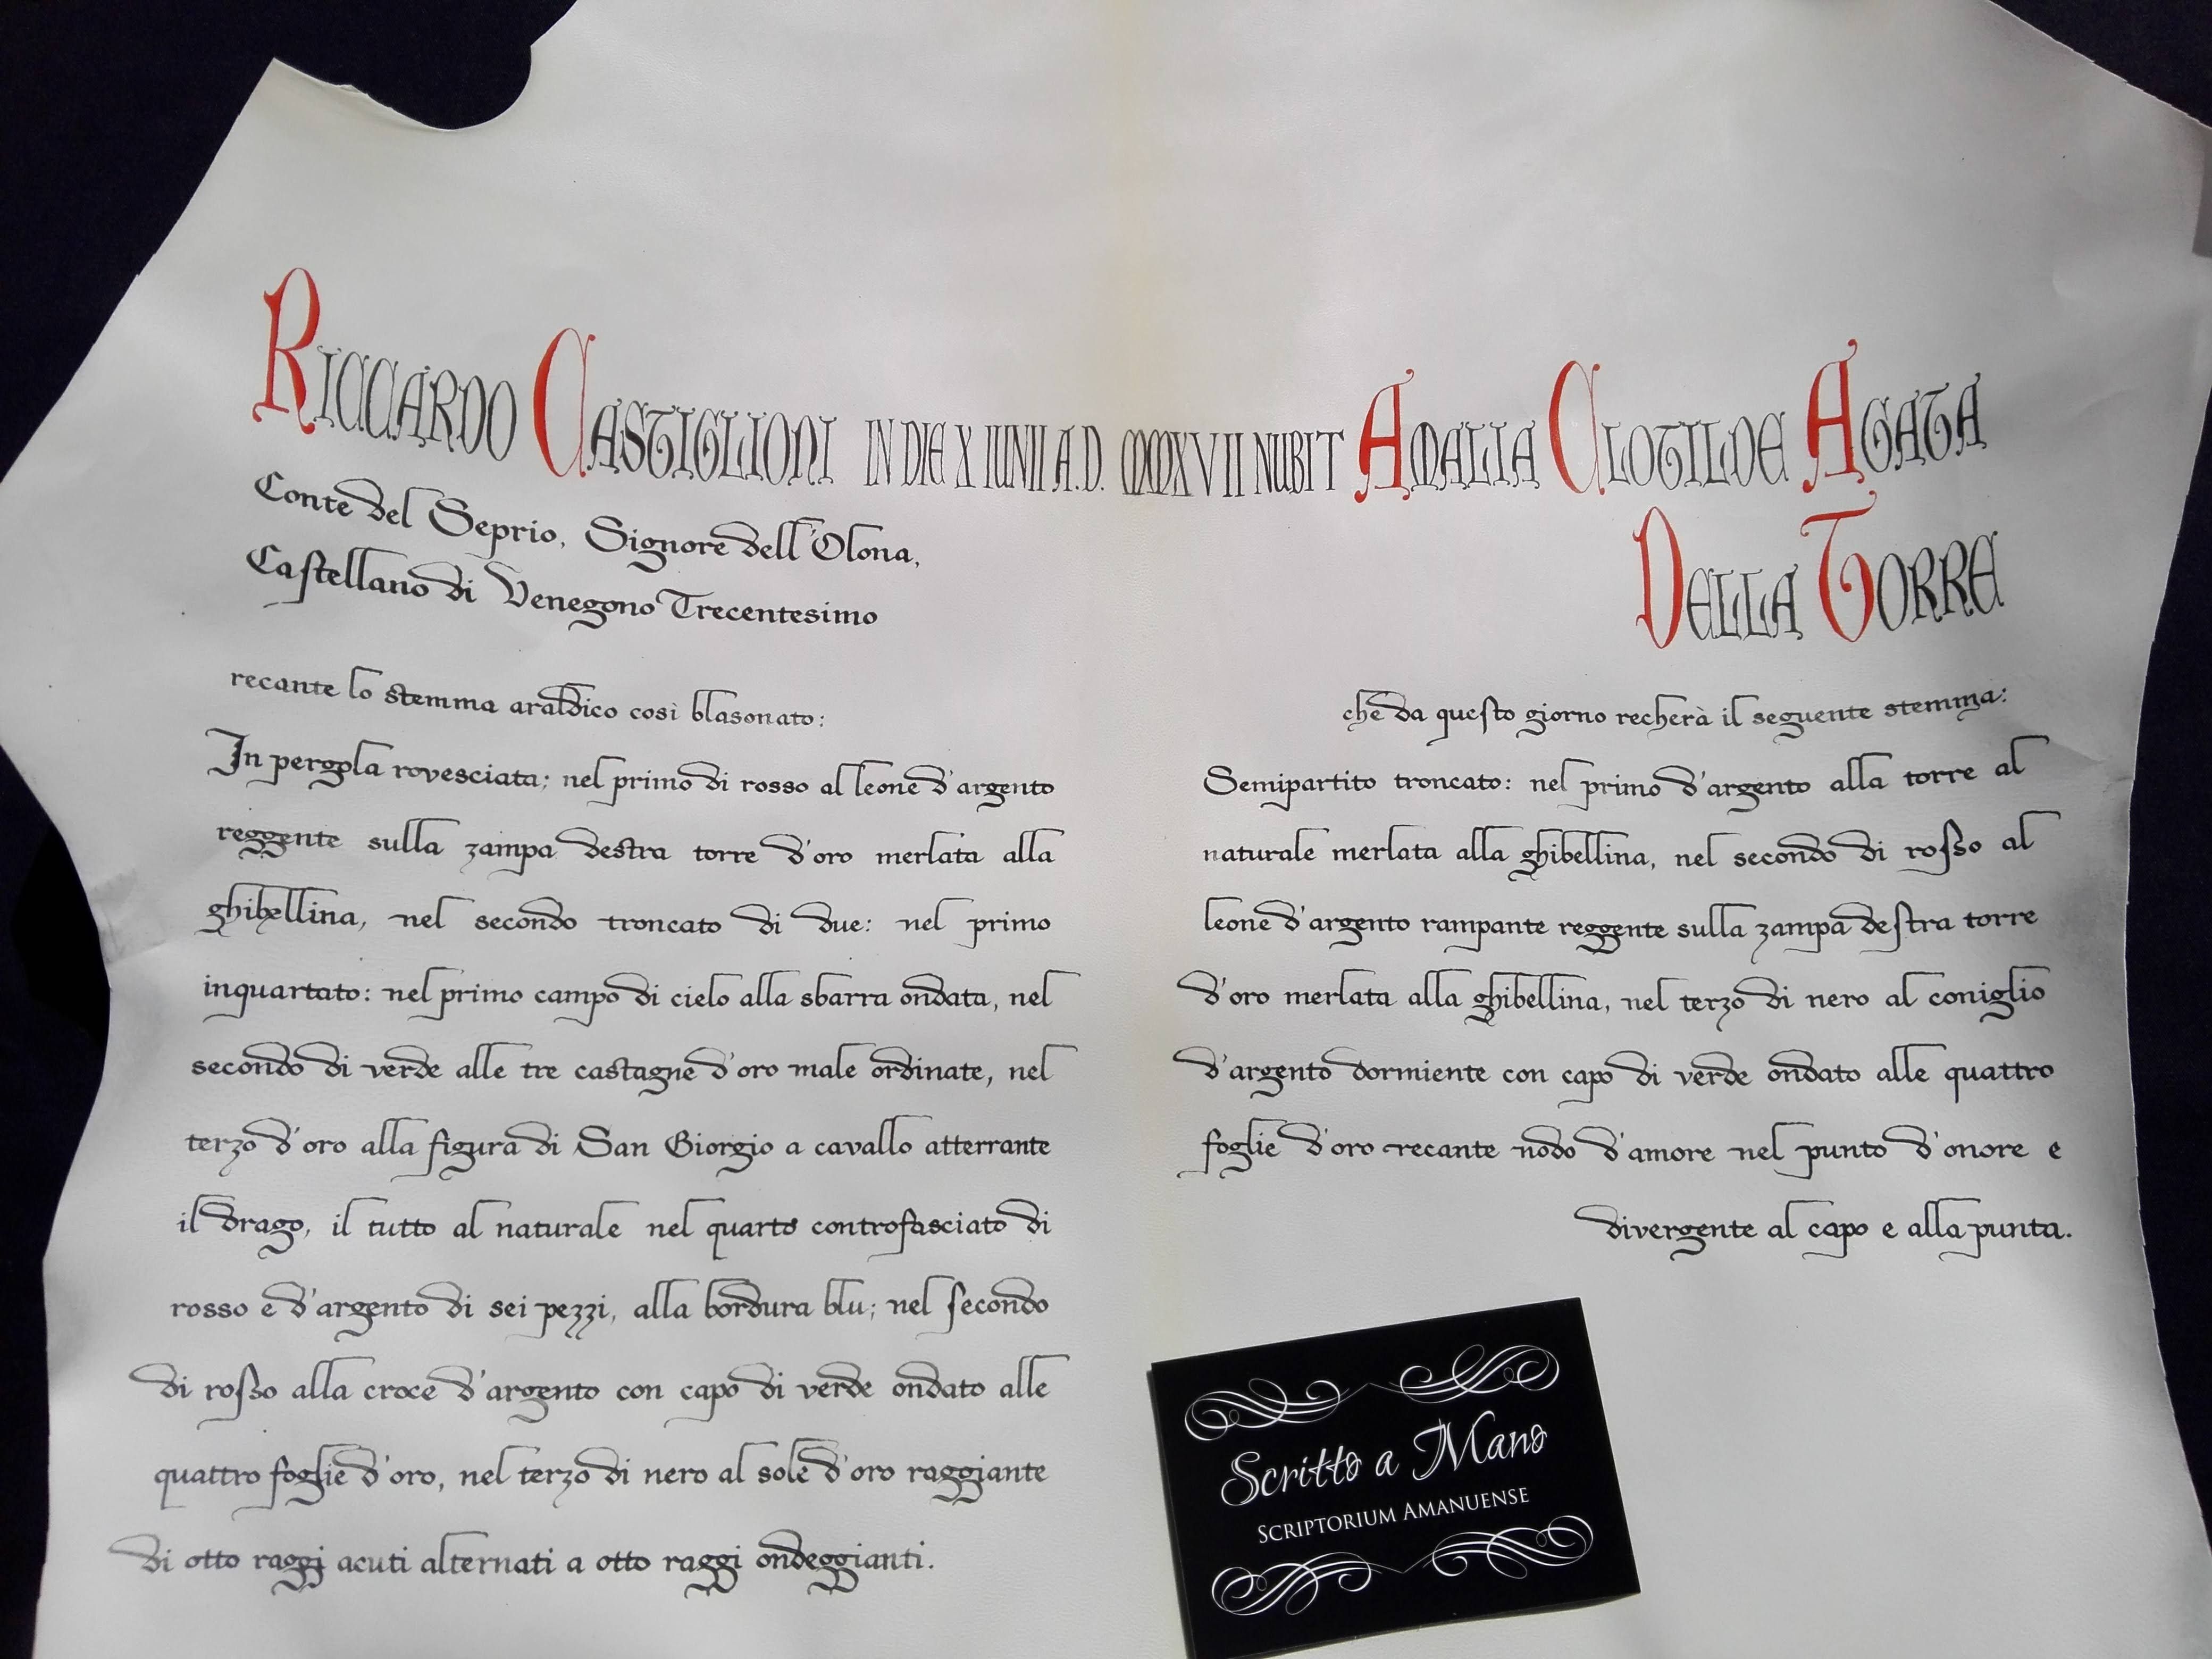 RICCARDO CASTIGLIONI IN DIE X IUNII A.D. MMXVII NUBIT AMALIA CLOTILDE AGATA
DELLA TORRE
Conte del Seprio, Signore dell'Olona,
Castellano di Venegono Trecentesimo
recante lo stemma araldico così blasonato:
In pergola rovesciata; nel primo di rosso al leone d'argento
reggente sulla zampa destra torre d'oro merlata alla
ghibellina, nel secondo troncato di due: nel primo
inquartato: nel primo campo di cielo alla sbarra ondata, nel
secondo di verde alle tre castagne d'oro male ordinate, nel
terzo d'oro alla figura di San Giorgio a cavallo atterrante
il drago, il tutto al naturale nel quarto controfasciato di
rosso e d'argento di sei pezzi, alla bordura blu; nel secondo
di rosso alla croce d'argento con capo di verde ondato alle
quattro foglie d'oro, nel terzo di nero al sole d'oro raggiante
di otto raggi acuti alternati a otto raggi ondeggianti.
che da questo giorno recherà il seguente stemma:
Semipartito troncato: nel primo d'argento alla torre al
naturale merlata alla ghibellina, nel secondo di rosso al
leone d'argento rampante reggente sulla zampa destra torre
d'oro merlata alla ghibellina, nel terzo di nero al coniglio
d'argento dormiente con capo di verde ondato alle quattro
foglie d'oro recante nodo d'amore nel punto d'onore e
divergente al capo e alla punta.
Scritto a Mano
SCRIPTORIUM AMANUENSE